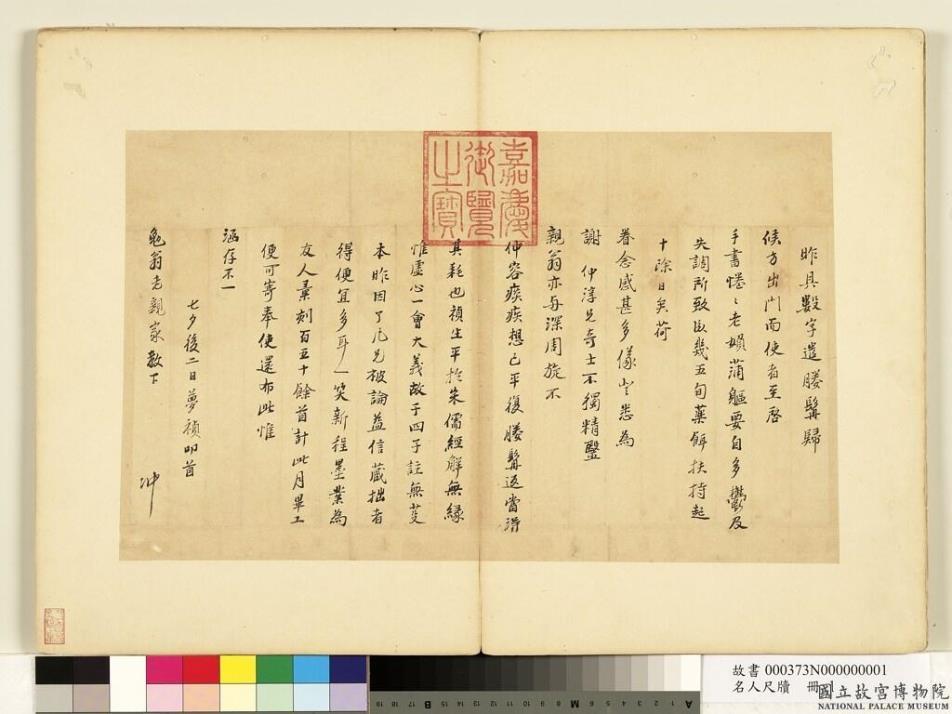 昨具數字遣媵髯歸
候方出門而使者至啓
手書惓〻老嬾蒲軀要自多鬱及
失調所致臥幾五旬藥餌扶持起
十除日矣荷
眷念感甚多儀
悉為
謝 仲淳兄奇士不獨精毉
親翁亦每深周旋不
仲容痰疾想已平復媵髯返當得
其耗也禎生平於朱儒經解無緣
惟虛心一會大義故于四子註無蔓
本昨因了凡兄被論益信藏拙者
得便宜多耳一笑新程墨業為
友人彙刻百五十餘首計此月畢工
便可寄奉使還布此惟
涵存不一
七夕後二日夢禎叩首
龜翁老親家敎下
冲
嘉慶
御覽
之寶
故書 000373N000000001
名人尺牘 冊
國立故宮博物院
NATIONAL PALACE MUSEUM